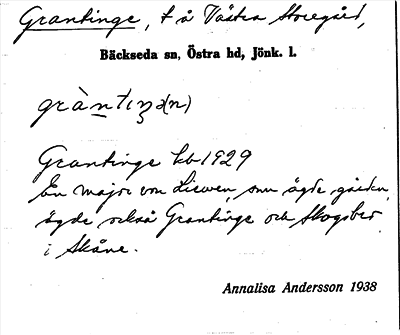 Grantinge, t å Västra Storegård,
Bäckseda sn, Östra hd, Jönk. l.
gràntiŋə(n)
Grantinge kb 1929
En major von Liewen, som ägde gården,
ägde också Grantinge och Skogsbo
i Skåne.
Annalisa Andersson 1938